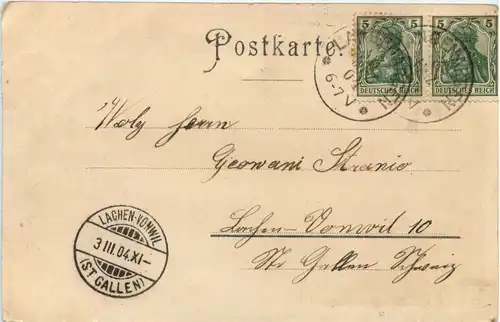 Postkarte.
5 5 5 5
DEUTSCHES REICH DEUTSCHES REICH
6-7 V
Wolg Herrn
Geowani Stranio
Lachen-Vonwil 10
St. Gallen Schweiz
LACHEN-VONWIL
3 III. 04.XI-
(ST GALLEN)